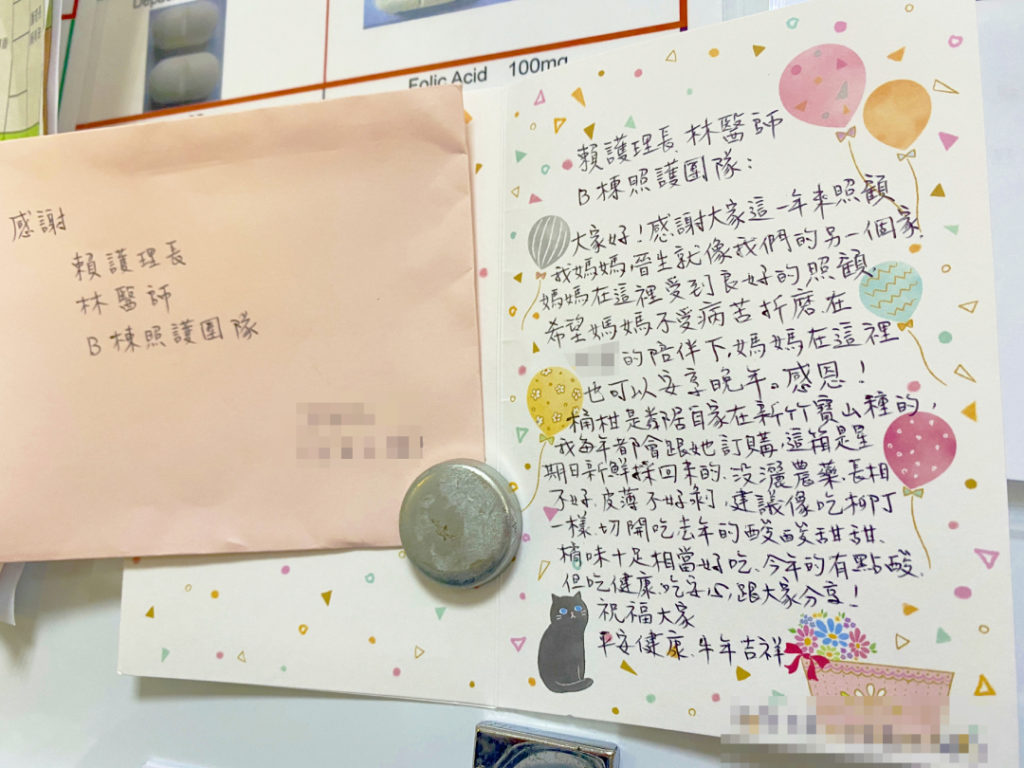 Folic Acid 100mg
感謝
賴護理長
林醫師
B棟照護團隊
賴護理長、林醫師
B棟照護團隊：
大家好！感謝大家這一年來照顧
我媽媽，晉生就像我們的另一個家
媽媽在這裡受到良好的照顧、
希望媽媽不受病苦折磨、在
的陪伴下，媽媽在這裡
也可以安享晚年。感恩！
桶柑是鄰居自家在新竹寶山種的，
我每年都會跟她訂購，這箱是星
期日新鮮採回來的、沒灑農藥、長相
不好、皮薄不好剝，建議像吃柳丁
一樣，切開吃去年的酸酸甜甜、
橘味十足相當好吃、今年的有點酸、
但吃健康、吃安心，跟大家分享！
祝福大家
平安健康、牛年吉祥